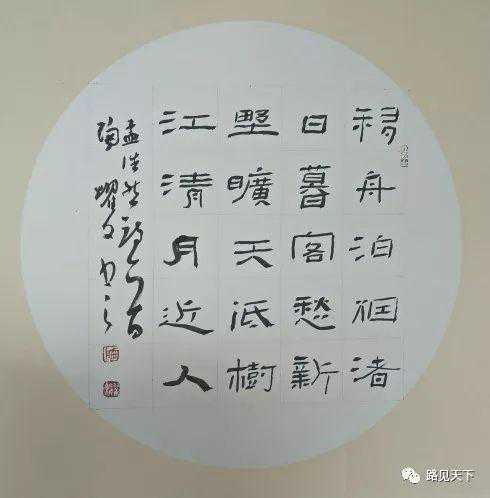 移舟泊烟渚
日暮客愁新
墅曠天低樹
江清月近人
孟浩然詩一首
路见天下